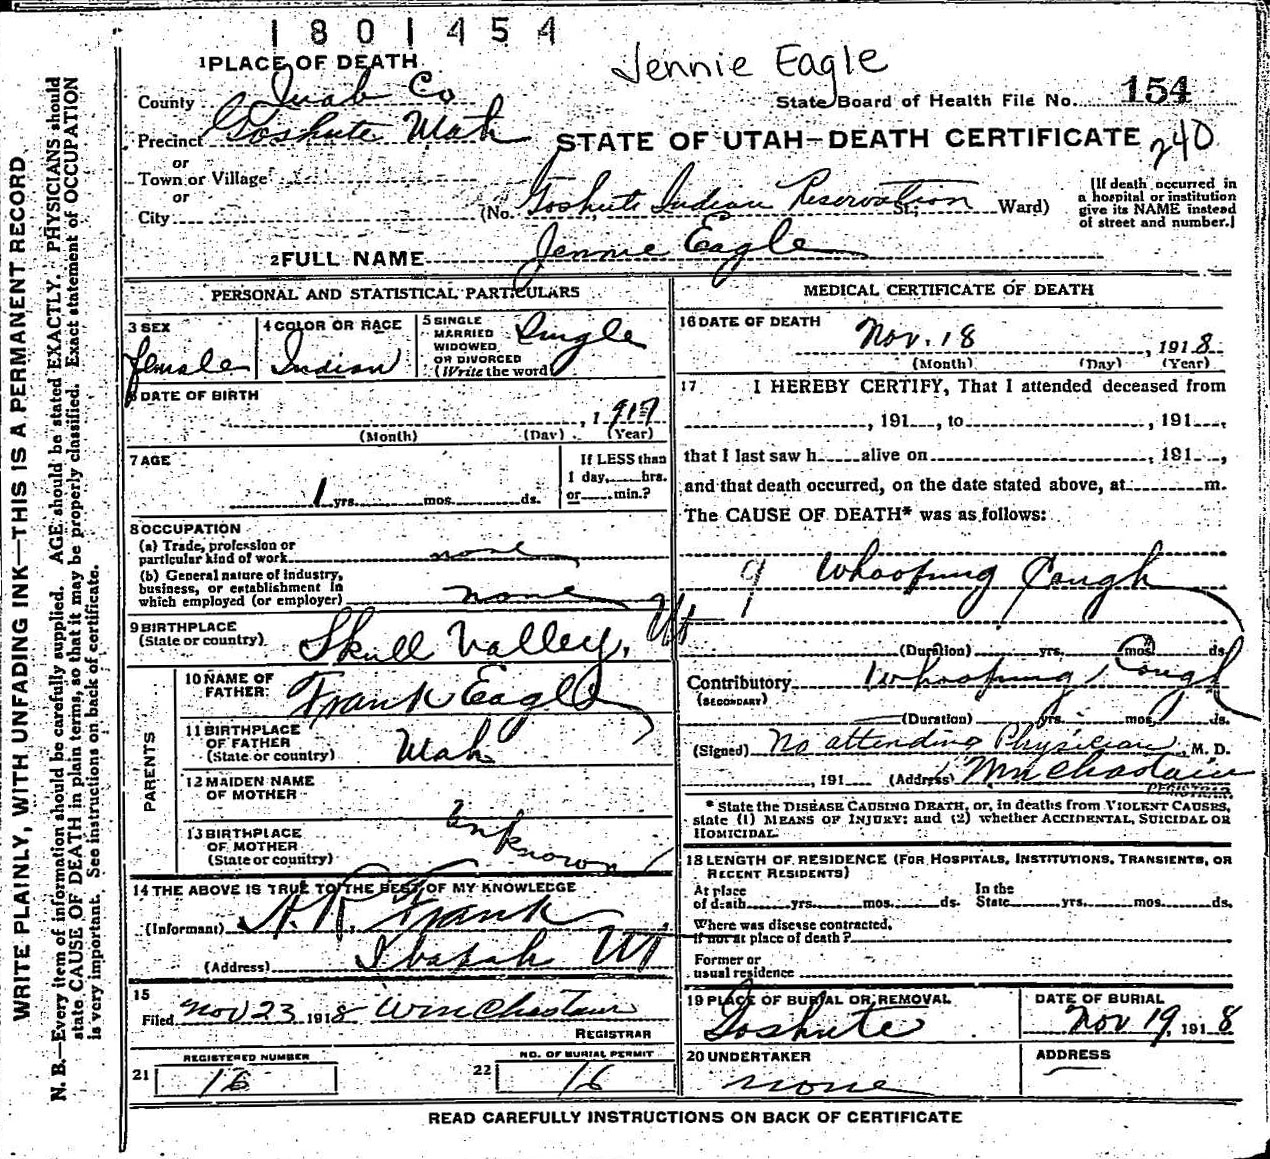 1801454
Jennie Eagle
1 PLACE OF DEATH
State Board of Health File No. 154
County Juab Co
Precinct Goshute Utah
STATE OF UTAH—DEATH CERTIFICATE 240
or
Town or Village
or
City
(No. Goshute Indian Reservation St.; Ward)
[If death occurred in
a hospital or institution
give its NAME instead
of street and number.]
2 FULL NAME Jennie Eagle
PERSONAL AND STATISTICAL PARTICULARS
3 SEX
female
4 COLOR OR RACE
Indian
5 SINGLE
MARRIED
WIDOWED
OR DIVORCED
(Write the word)
Single
6 DATE OF BIRTH
, 1917
(Month) (Day) (Year)
7 AGE
1 yrs. mos. ds.
If LESS than
1 day, hrs.
or min.?
8 OCCUPATION
(a) Trade, profession or
particular kind of work none
(b) General nature of industry,
business, or establishment in
which employed (or employer) none
9 BIRTHPLACE
(State or country) Skull Valley, Ut
PARENTS
10 NAME OF
FATHER Frank Eagle
11 BIRTHPLACE
OF FATHER
(State or country) Utah
12 MAIDEN NAME
OF MOTHER
Unknown
13 BIRTHPLACE
OF MOTHER
(State or country)
14 THE ABOVE IS TRUE TO THE BEST OF MY KNOWLEDGE
(Informant) A. R. Frank
(Address) Ibapah Ut
15
Filed Nov 23 1918 Wm Chastain
REGISTRAR
REGISTERED NUMBER
21 16
NO. OF BURIAL PERMIT
22 16
MEDICAL CERTIFICATE OF DEATH
16 DATE OF DEATH
Nov. 18, 1918
(Month) (Day) (Year)
17 I HEREBY CERTIFY, That I attended deceased from
, 191 , to , 191 ,
that I last saw h alive on , 191 ,
and that death occurred, on the date stated above, at m.
The CAUSE OF DEATH* was as follows:
9 Whooping Cough
(Duration) yrs. mos. ds.
Contributory Whooping Cough
(SECONDARY)
(Duration) yrs. mos. ds.
(Signed) No attending Physician, M. D.
, 191 (Address) Wm Chastain
REGISTRAR
* State the DISEASE CAUSING DEATH, or, in deaths from VIOLENT CAUSES,
state (1) MEANS OF INJURY; and (2) whether ACCIDENTAL, SUICIDAL OR
HOMICIDAL.
18 LENGTH OF RESIDENCE (FOR HOSPITALS, INSTITUTIONS, TRANSIENTS, OR
RECENT RESIDENTS)
At place
of death yrs. mos. ds.
In the
State yrs. mos. ds.
Where was disease contracted,
if not at place of death?
Former or
usual residence
19 PLACE OF BURIAL OR REMOVAL
Goshute
DATE OF BURIAL
Nov 19, 1918
20 UNDERTAKER
none
ADDRESS
READ CAREFULLY INSTRUCTIONS ON BACK OF CERTIFICATE
WRITE PLAINLY, WITH UNFADING INK—THIS IS A PERMANENT RECORD
N. B.—Every item of information should be carefully supplied. AGE should be stated EXACTLY. PHYSICIANS should
state CAUSE OF DEATH in plain terms, so that it may be properly classified. Exact statement of OCCUPATION
is very important. See instructions on back of certificate.